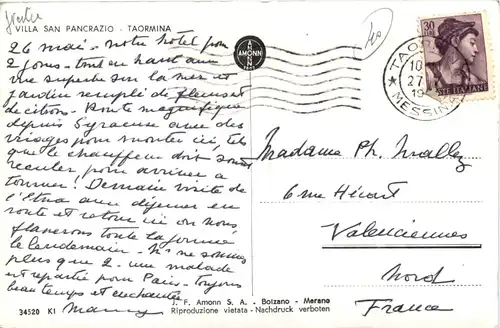 VILLA SAN PANCRAZIO - TAORMINA
26 mai - notre hôtel pour
2 jours - tout en haut avec
vue superbe sur la mer et
jardin rempli de fleurs et
de citrons - Route magnifique
depuis Syracuse avec des
virages pour monter ici, tels
que le chauffeur doit
reculer, pour arriver à
tourner! Demain visite de
l'Etna avec déjeuner en
route et retour ici où nous
flanerons toute la journée
le lendemain - Ns ne sommes
plus que 2 - une malade
est repartie pour Paris - Toujours
beau temps et enchantée
34520 KI
AMONN
30
POSTE ITALIANE
TAORMINA
10
27
19
MESSINA
Madame Ph. Mallez
6 rue Hécart
Valenciennes
Nord
France
J. F. Amonn S. A. - Bolzano - Merano
Riproduzione vietata - Nachdruck verboten